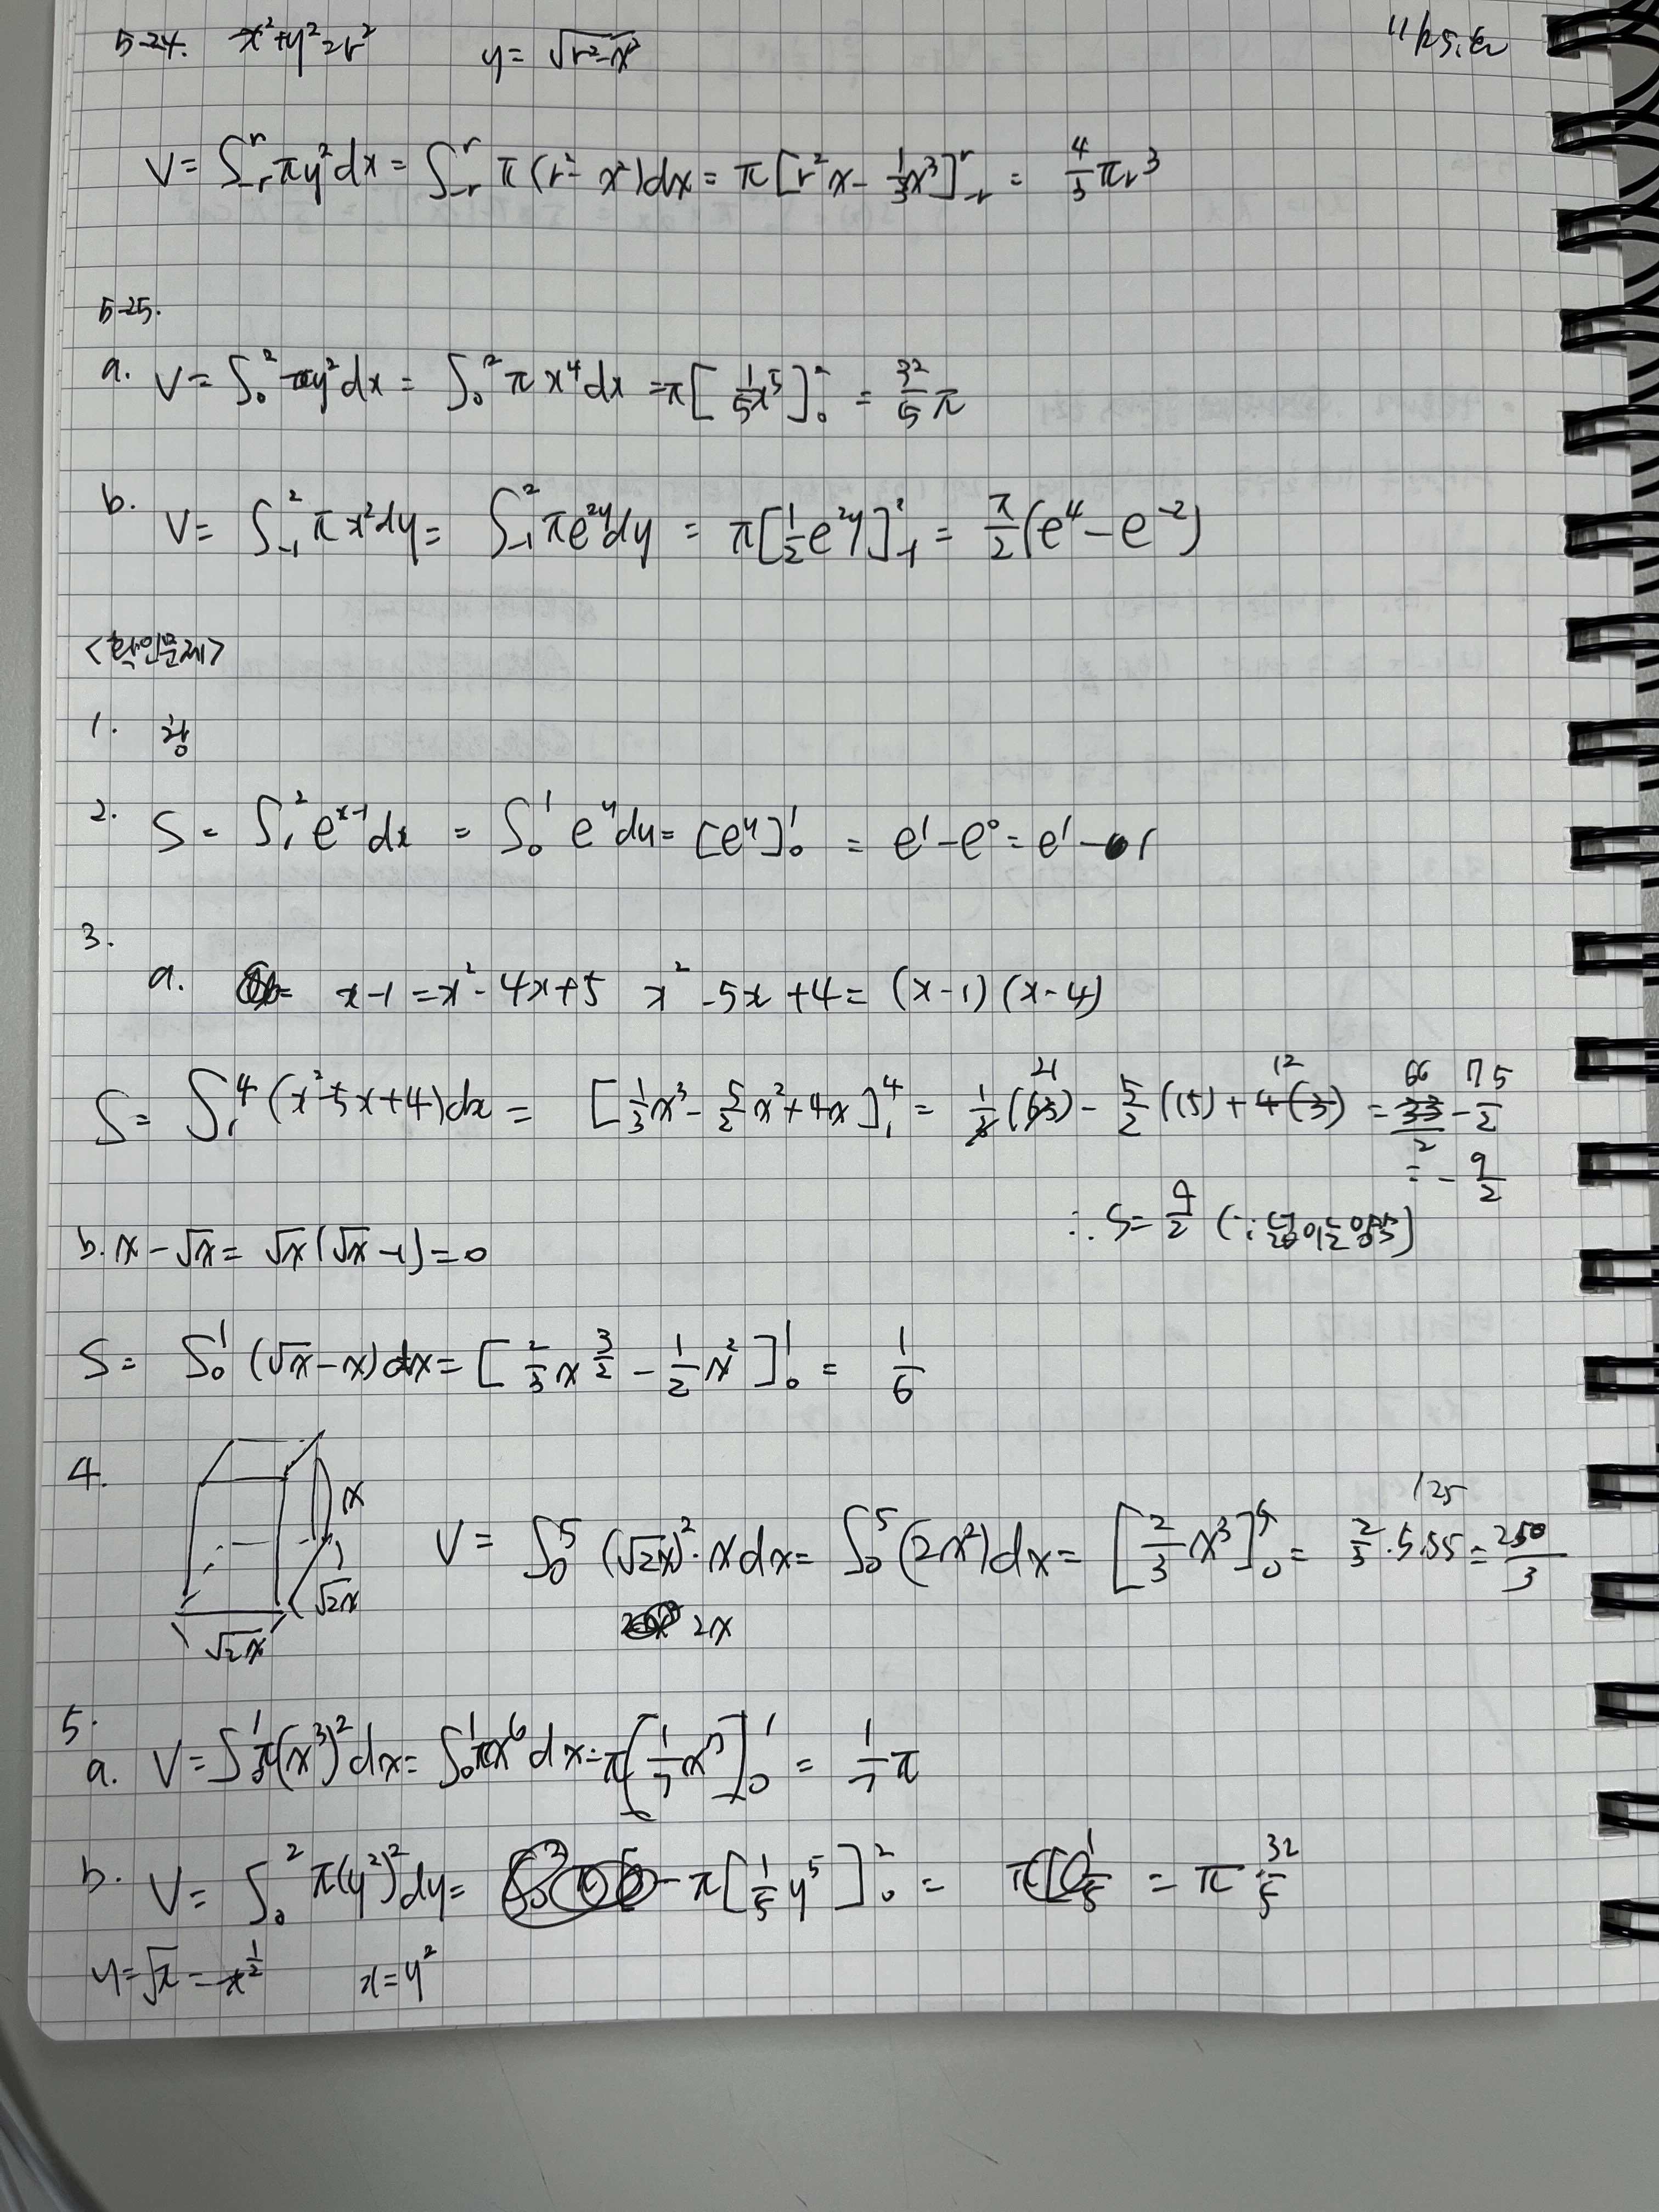 5-24. x²+y²=r² y= √r²-x²
V= ∫₋ᵣʳ πy²dx = ∫₋ᵣʳ π(r²-x²)dx = π[r²x- 1/3x³]₋ᵣʳ = 4/3 πr³
5-25.
a. V= ∫₀² πy²dx = ∫₀² πx⁴dx =π[1/5x⁵]₀² = 32/5 π
b. V= ∫₋₁² πx²dy= ∫₋₁² πe²ʸdy = π[1/2e²ʸ]₋₁² = π/2(e⁴-e⁻²)
<확인문제>
1.
2. S= ∫₁² eˣ⁻¹dx = ∫₀¹ eᵘdu= [eᵘ]₀¹ = e¹-e⁰= e¹-1
3.
a. x-1=x²-4x+5 x²-5x+4= (x-1)(x-4)
S= ∫₁⁴ (x²-5x+4)dx = [1/3x³-5/2x²+4x]₁⁴ = 1/3(63) 21 - 5/2(15)+4(3) 12 = 33 66/2 - 75/2
= - 9/2
∴ S= 9/2 (∵ 넓이는 양수)
b. x-√x= √x(√x-1)=0
S= ∫₀¹ (√x-x)dx= [2/3x^3/2 - 1/2x²]₀¹ = 1/6
4. x
√2x
√2x
V= ∫₀⁵ (√2x)²·xdx= ∫₀⁵ (2x²)dx= [2/3x³]₀⁵ = 2/3·5.55 125 = 250/3
2x
5.
a. V=∫₀¹π(x³)²dx= ∫₀¹πx⁶dx=π[1/7x⁷]₀¹ = 1/7π
b. V= ∫₀² π(y²)²dy= π[1/5y⁵]₀² = π 1/5 = π 32/5
y=√x=x^1/2 x=y²